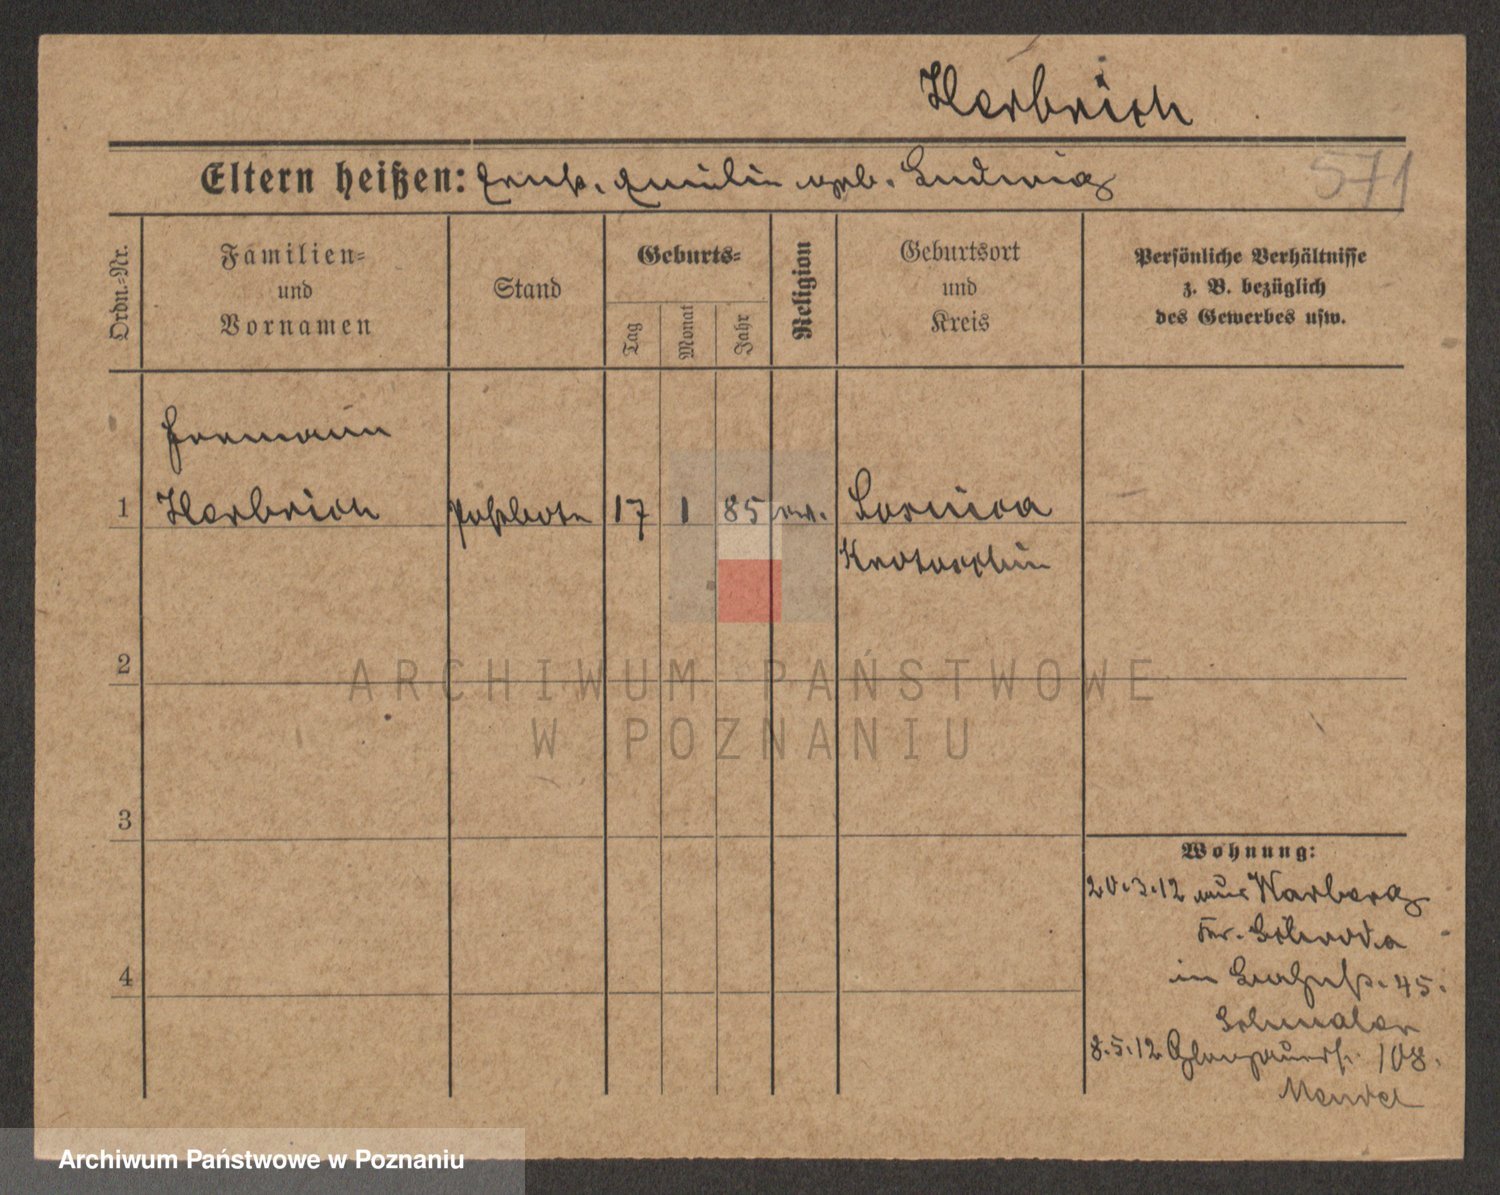 Herbrich
Eltern heißen: Ernst. Emilie geb. Ludwig
571
Ordn.-Nr.
Familien-
und
Vornamen
Stand
Geburts-
Tag
Monat
Jahr
Religion
Geburtsort
und
Kreis
Persönliche Verhältnisse
z. B. bezüglich
des Gewerbes usw.
Hermann
1 Herbrich Postbote 17 1 85 ev.
Krotoschin
2
ARCHIWUM PAŃSTWOWE
W POZNANIU
3
Wohnung:
20.3.12 aus Warberg
Kr. Schroda
in 45.
4
8.5.12 Glogauerst. 108.
Mendel
Archiwum Państwowe w Poznaniu